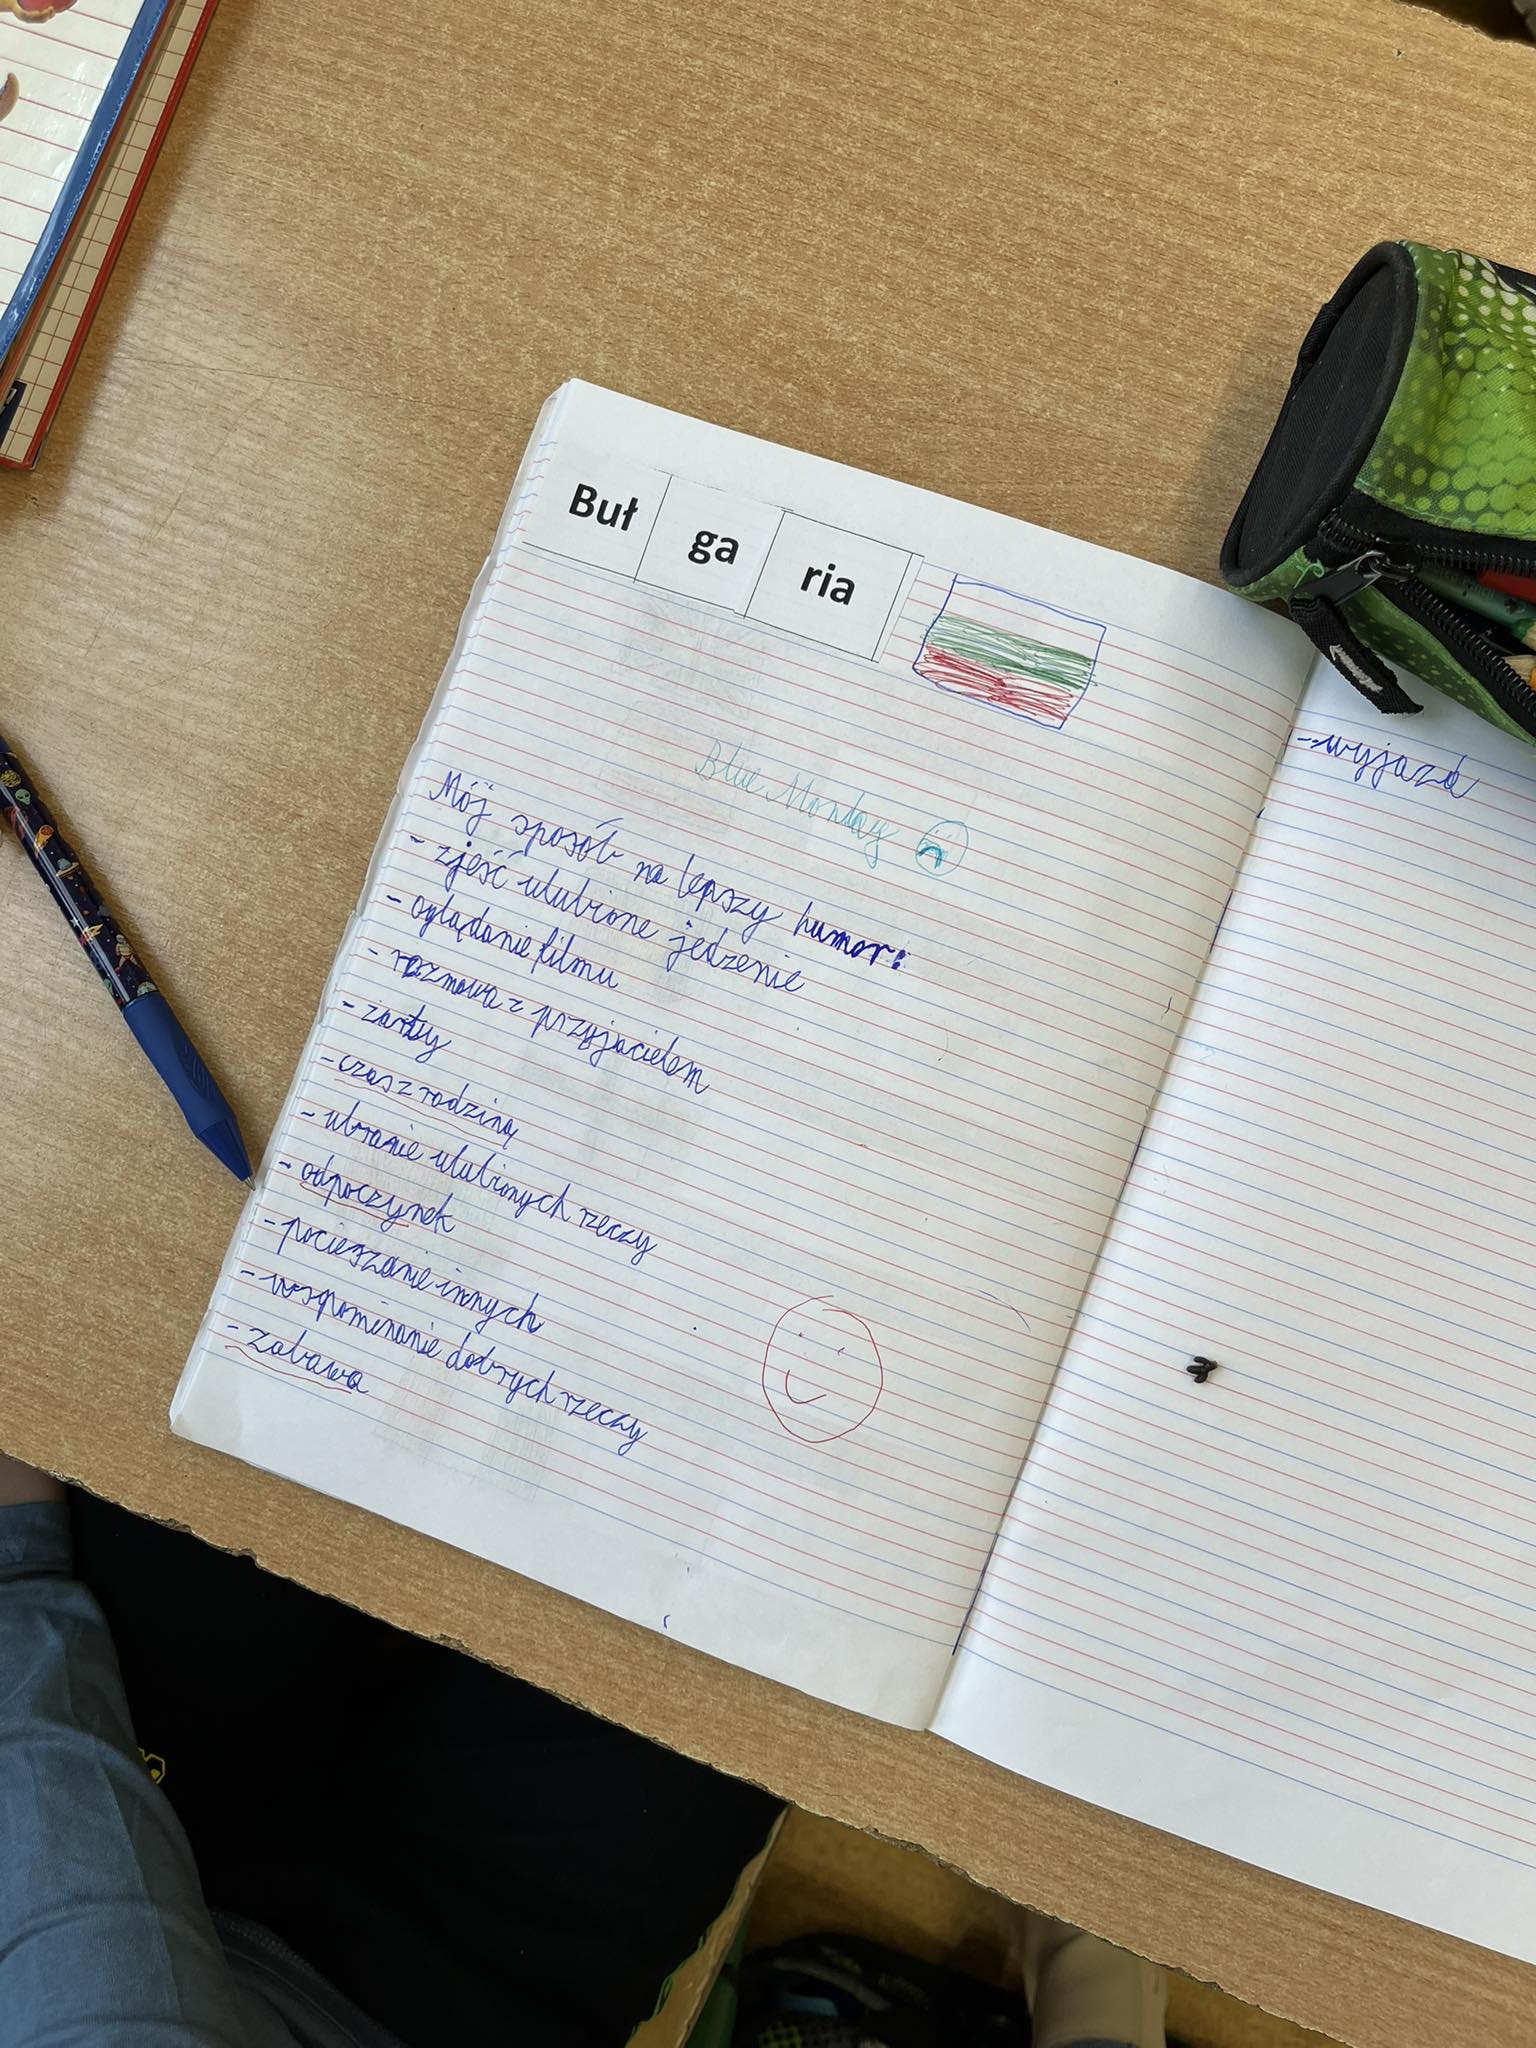 Buł ga ria
Blue Monday
Mój sposób na lepszy humor:
- zjeść ulubione jedzenie
- oglądanie filmu
- rozmowa z przyjacielem
- żarty
- czas z rodziną
- ubranie ulubionych rzeczy
- odpoczynek
- pocieszanie innych
- wspominanie dobrych rzeczy
- zabawa
- wyjazd